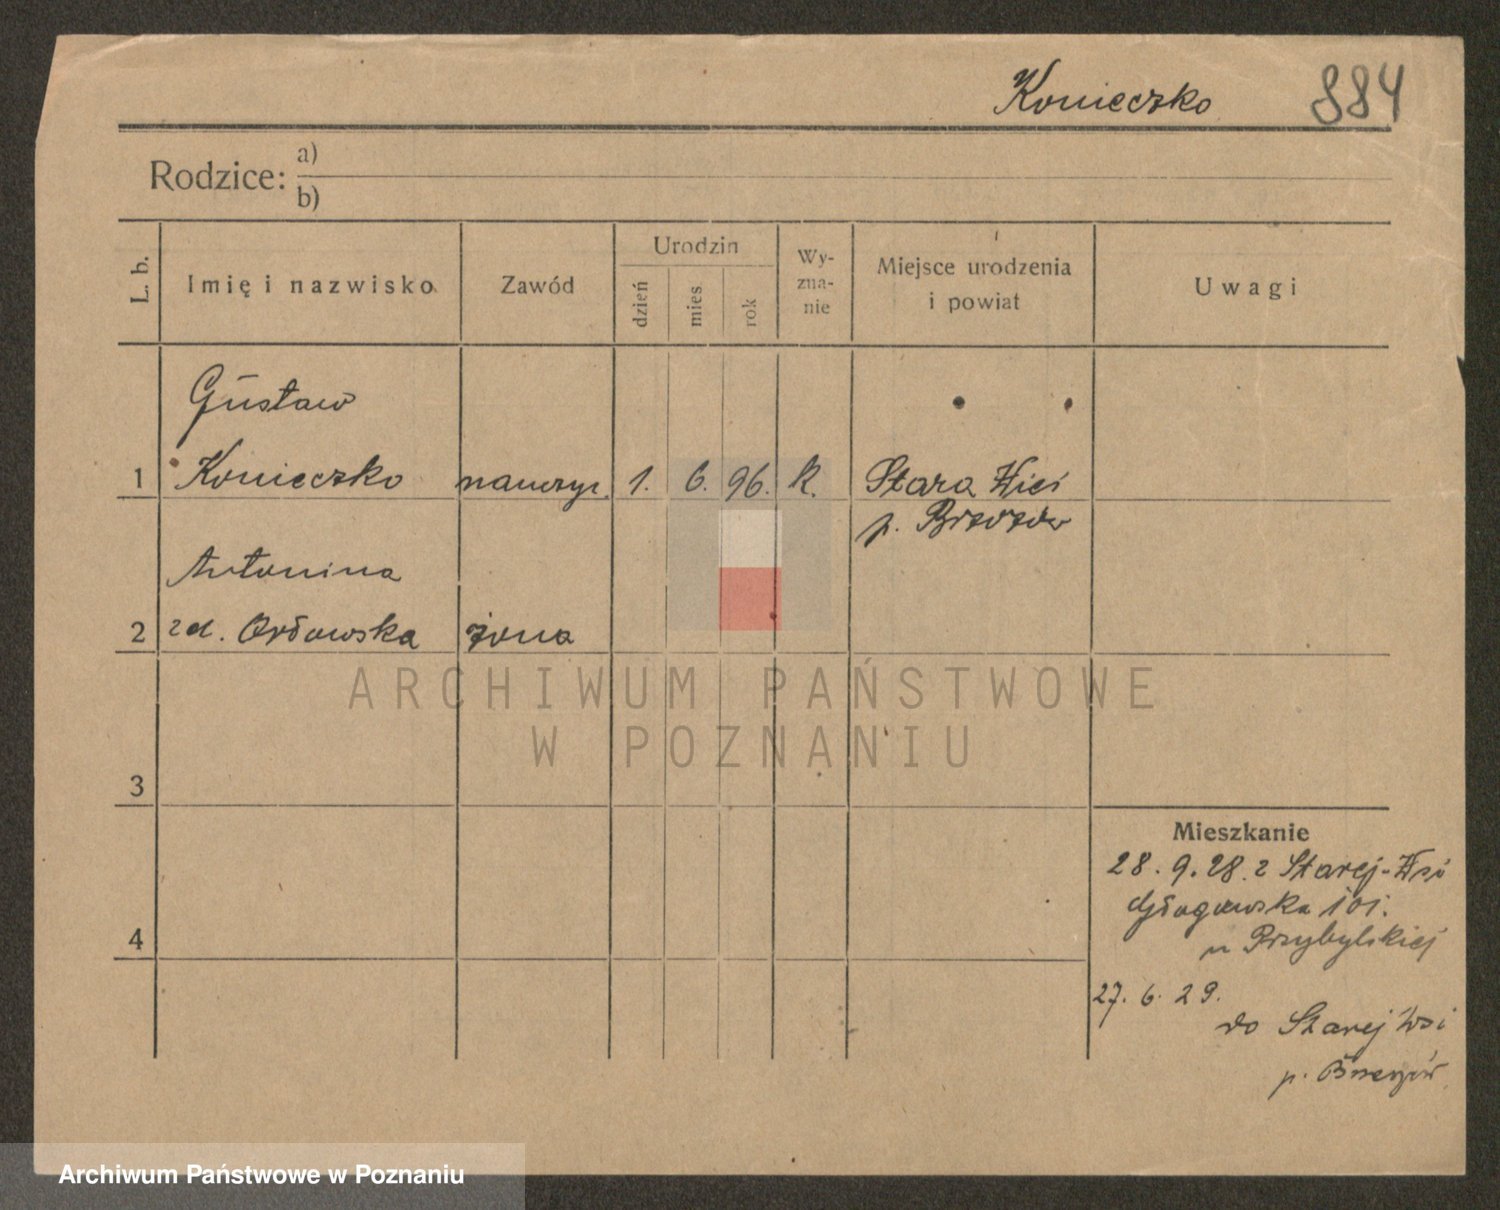 Konieczko 884
Rodzice: a)
b)
L. b.
Imię i nazwisko
Zawód
Urodzin
dzień
mies.
rok
Wy-
zna-
nie
Miejsce urodzenia
i powiat
Uwagi
Gustaw
1 Konieczko nauczyc. 1. 6. 96. k. Stara Wieś
p. Brzozów
Antonina
2 zd. Orłowska żona
3
4
Mieszkanie
28. 9. 28. z Starej-Wsi
Głogowska 101.
u Przybylskiej
27. 6. 29.
do Starej Wsi
p. Brzozów
ARCHIWUM PAŃSTWOWE
W POZNANIU
Archiwum Państwowe w Poznaniu